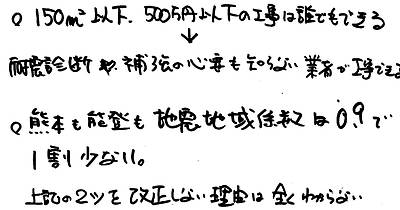 ○ 150㎡以下、500万円以下の工事は誰でもできる
↓
耐震診断や、補強の必要も知らない業者が工事できる
○ 熊本も能登も地震地域係数は0.9で
1割少ない。
上記の2つを改正しない理由は全くわからない